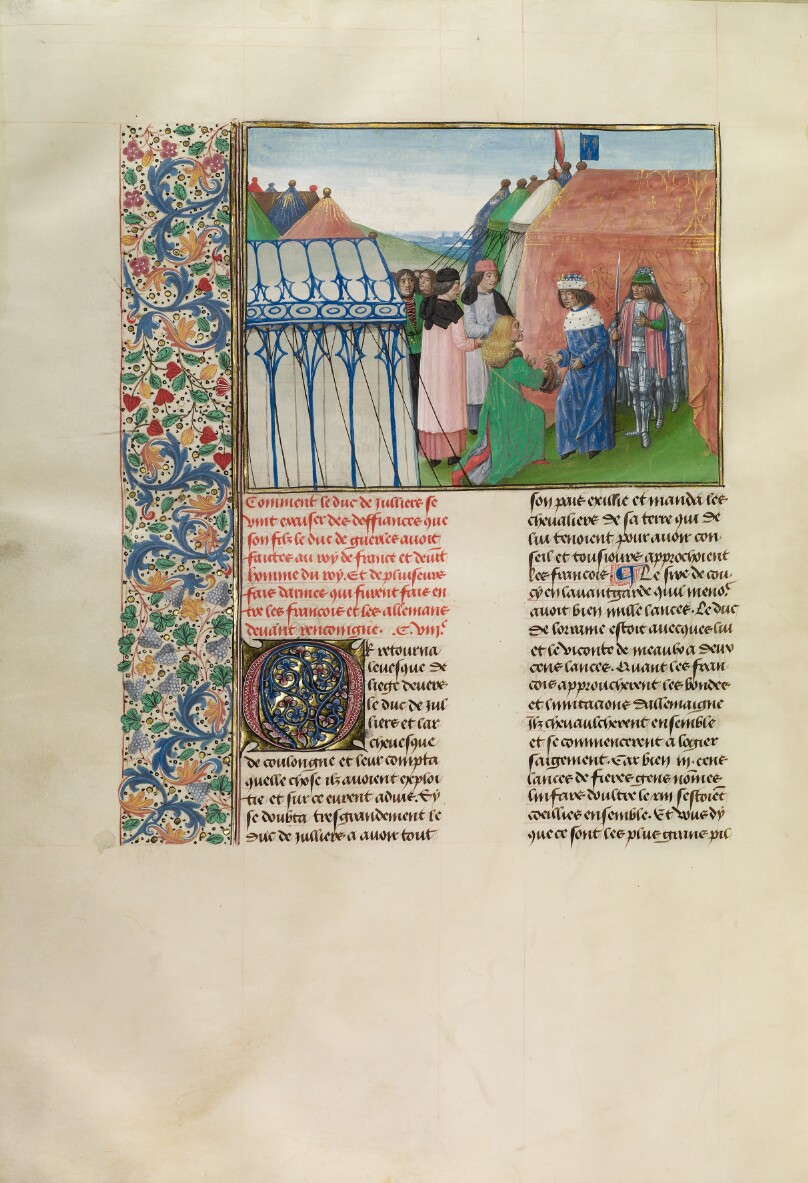 Comment le duc de Julliers se
vint excuser des deffiances que
son filz le duc de guerles auoit
faictes au roy de france et deuīt
homme du roy. Et de pluseurs
fais darmes qui furent fais en
tre les francois et les allemans
deuant rencongne. .C. viii.
Or retourna
leuesque de
liege deuers
le duc de Jul
liers et lar
cheuesque
de coulongne et leur compta
quelle chose ilz auoient exploi
tie et sur ce eurent aduis. Et
se doubta tresgrandement le
duc de Julliers a auoir tout
son pais exillie et manda les
cheualiers de sa terre qui de
lui tenoient pour auoir con
seil et tousiours approchoient
les francois ¶ Le sire de cou
cy en lauantgarde qui menoit
auoit bien mille lances. Le duc
de lorraine estoit auecques lui
et le viconte de meaulx a deux
cens lances. Quant les fran
cois approucherent les bondes
et limitacions dallemaigne
Ilz cheuaulcherent ensemble
et se commencerent a logier
saigement. Car bien iii. cens
lances de fieres gens nōmes
linfars doultre le rin sestoiēt
coeullies ensemble. Et vous dy
que ce sont les plus grans pil